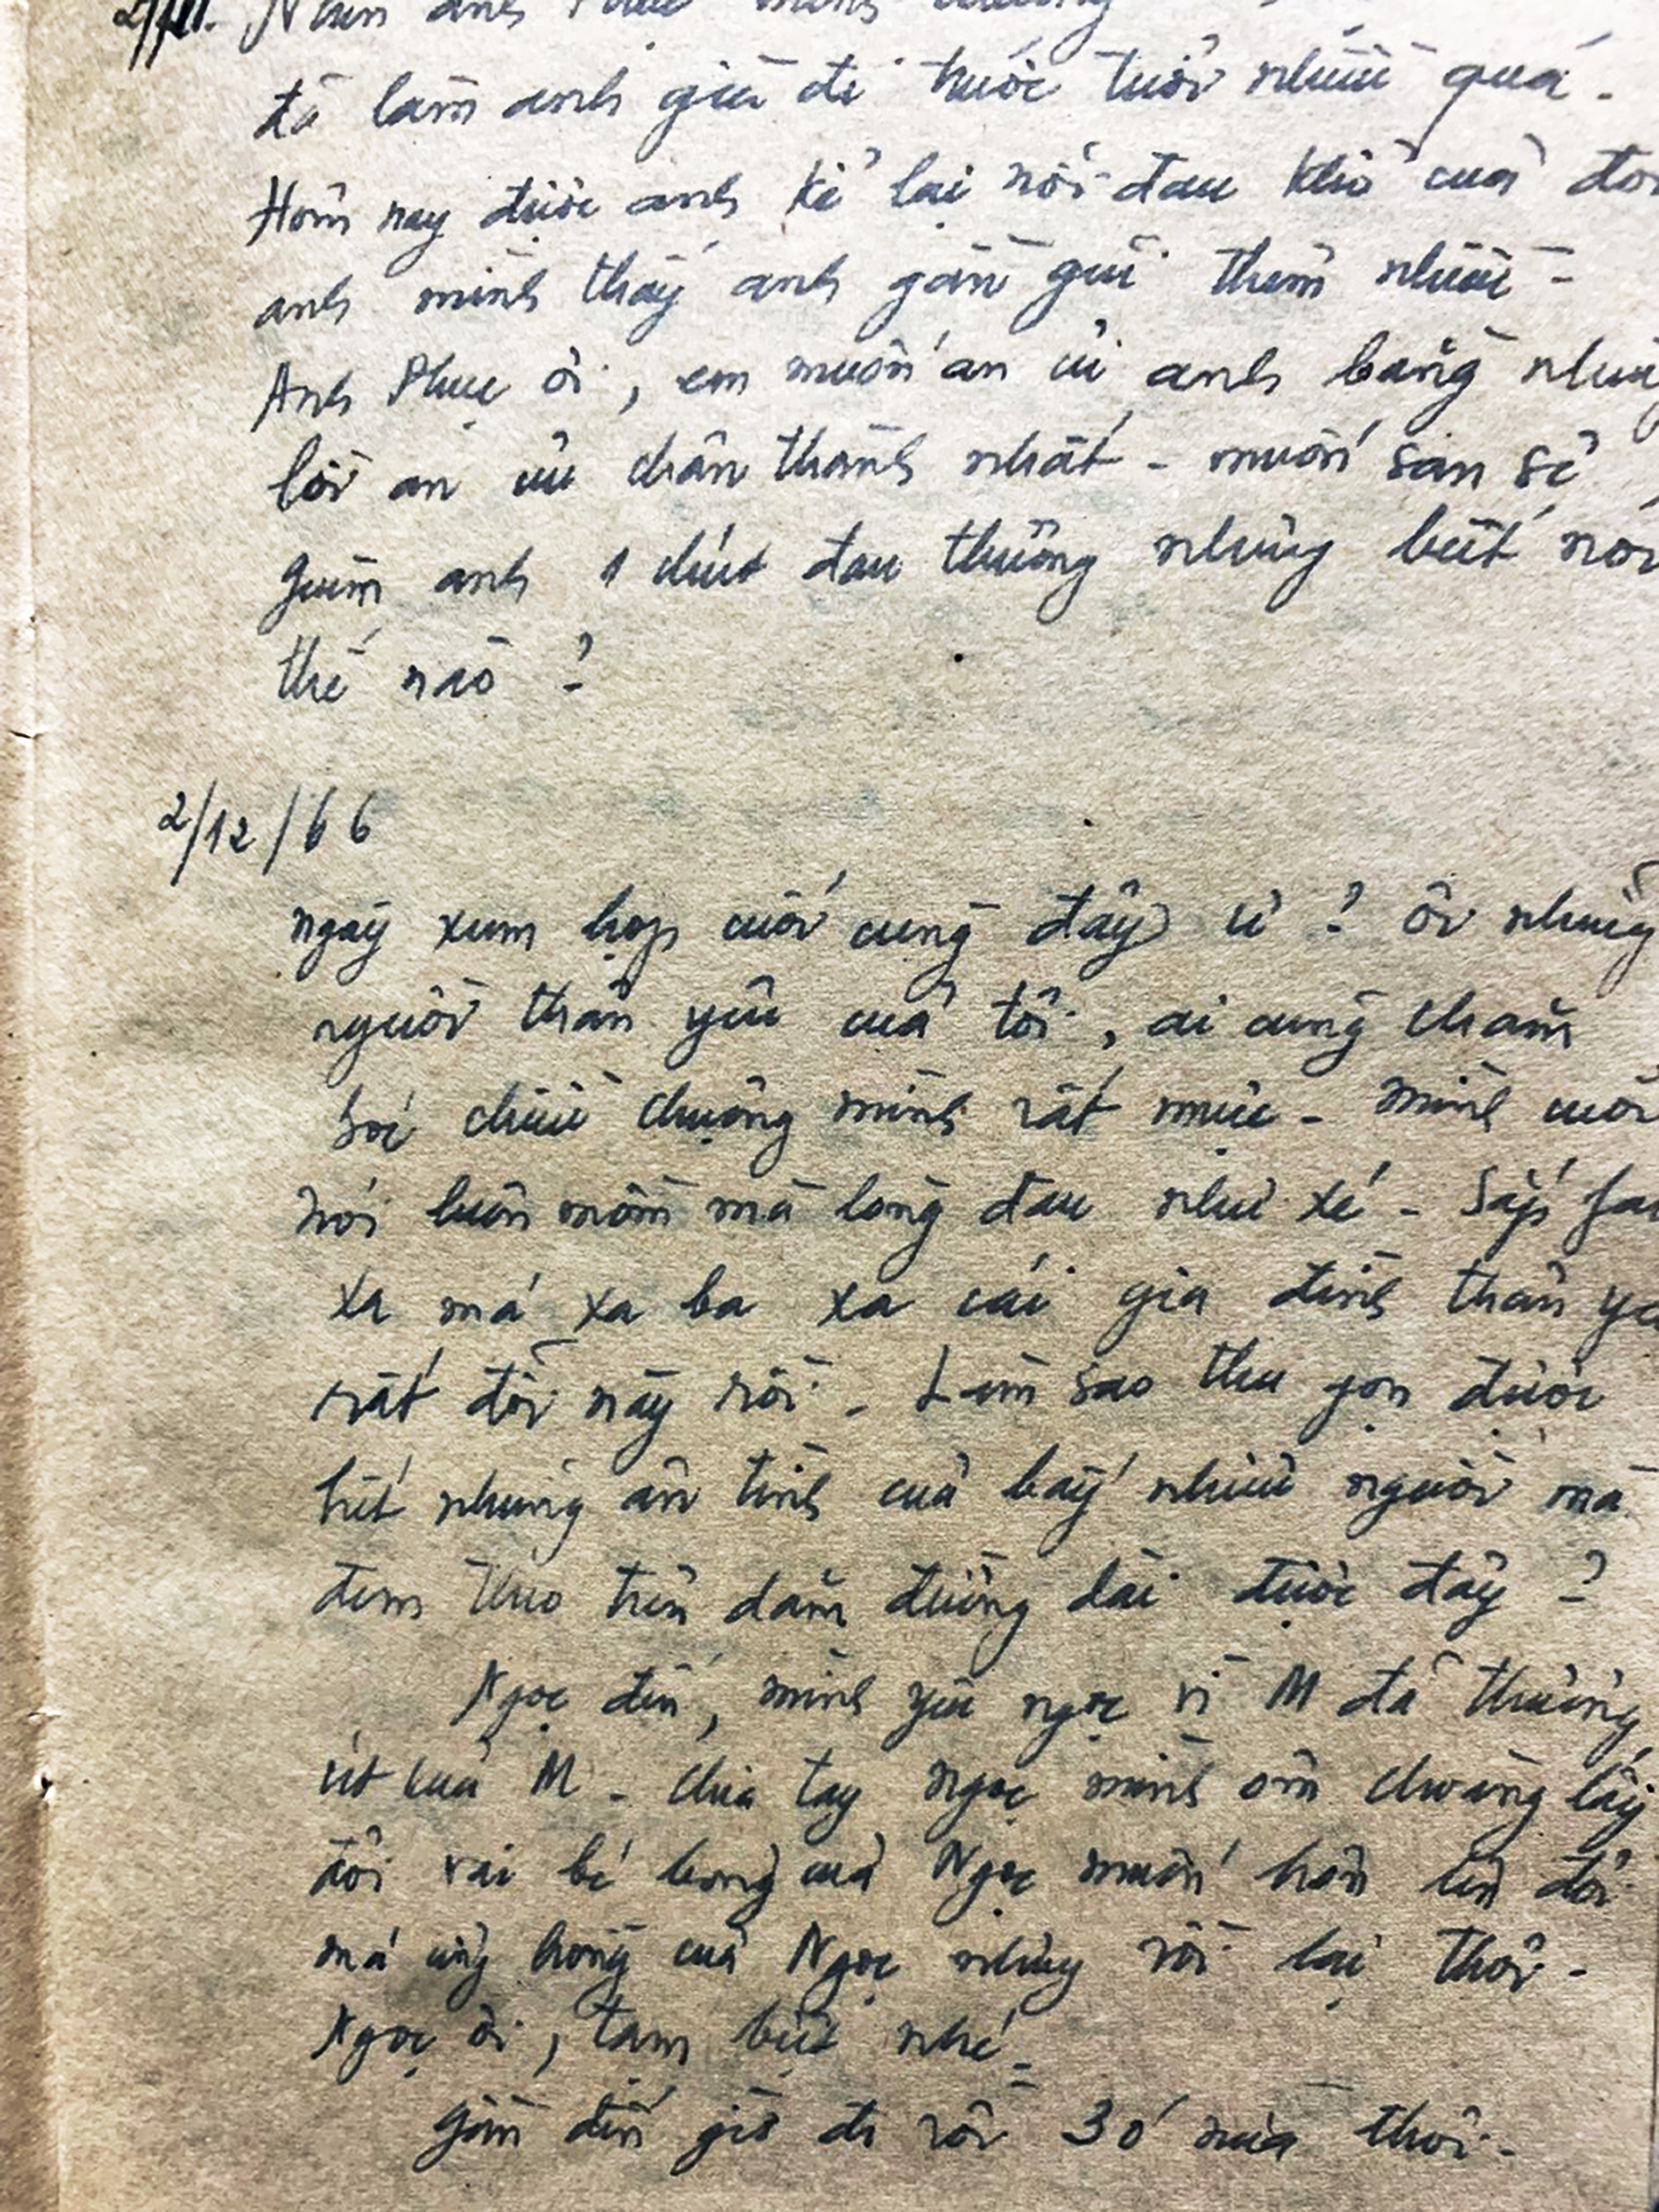 đã làm anh già đi trước tuổi nhiều quá -
Hôm nay được anh kể lại nỗi đau khổ của
anh mình thấy anh gần gũi thêm nhiều -
Anh Phục ơi, em muốn an ủi anh bằng
lời an ủi chân thành nhất - muốn san sẻ
giùm anh 1 chút đau thương nhưng biết
thế nào ?
2/12/66
ngày xum họp cuối cùng đây ư ? Ôi những
người thân yêu của tôi, ai cũng chăm
sóc chiều chuộng mình rất mực - mình
nói luôn mồm mà lòng đau như xé - Sắp
xa má xa ba xa cái gia đình thân
rất đỗi này rồi - Làm sao thu gọn được
hết những ân tình của bấy nhiêu người mà
đem theo trên dặm đường dài được đây ?
Ngọc đến, mình yêu ngọc vì M đã thương
út của M - chia tay ngọc mình ôm choàng lấy
đôi vai bé bỏng của Ngọc muốn hôn lên đôi
má ửng hồng của Ngọc nhưng rồi lại thôi -
Ngọc ơi, tạm biệt nhé -
gần đến giờ đi rồi 30' nữa thôi -